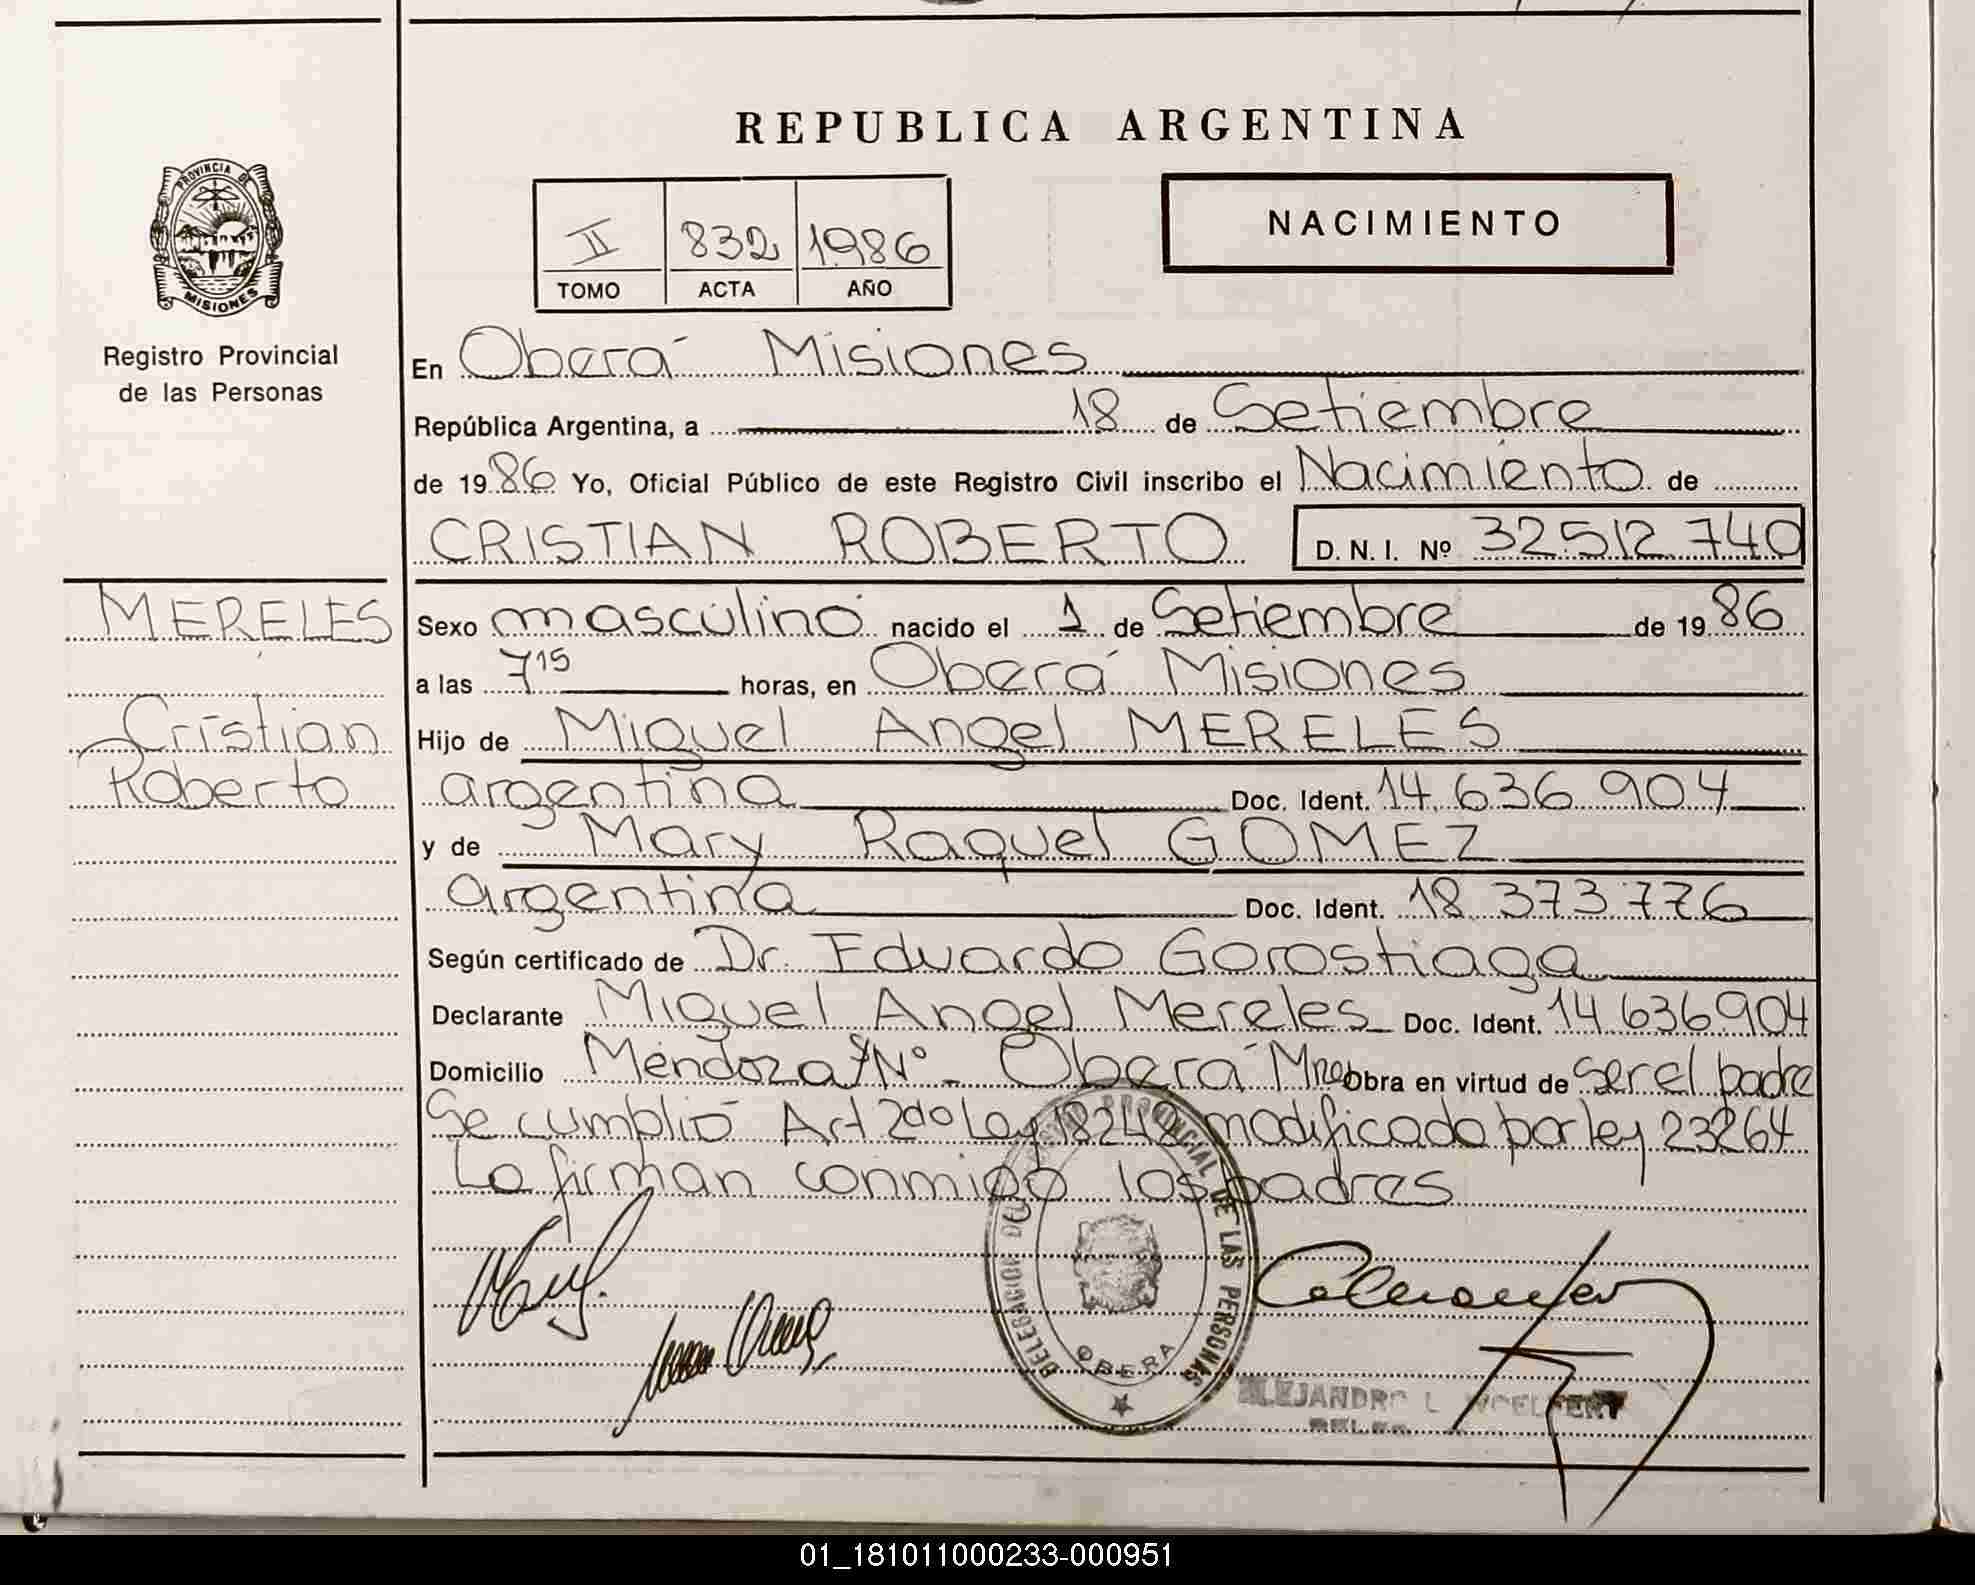 REPUBLICA ARGENTINA
PROVINCIA DE
MISIONES
Registro Provincial
de las Personas
II 832 1986
TOMO ACTA AÑO
NACIMIENTO
En Oberá Misiones
República Argentina, a 18 de Setiembre
de 1986 Yo, Oficial Público de este Registro Civil inscribo el Nacimiento de
CRISTIAN ROBERTO D.N.I. Nº 32512740
MERELES
Cristian
Roberto
Sexo masculino nacido el 1 de Setiembre de 1986
a las 7 15 horas, en Oberá Misiones
Hijo de Miguel Angel MERELES
argentina Doc. Ident. 14.636.904
y de Mary Raquel GOMEZ
argentina Doc. Ident. 18.373.776
Según certificado de Dr. Eduardo Gorostiaga
Declarante Miguel Angel Mereles Doc. Ident. 14.636904
Domicilio Mendoza S/Nº - Oberá Mnes Obra en virtud de ser el padre
Se cumplió Art 2do Ley 18248 modificado por ley 23264
Lo firman conmigo los padres
DELEGACION DEL REGISTRO PROVINCIAL DE LAS PERSONAS
OBERA
ALEJANDRO L. WOELFERT
01_181011000233-000951